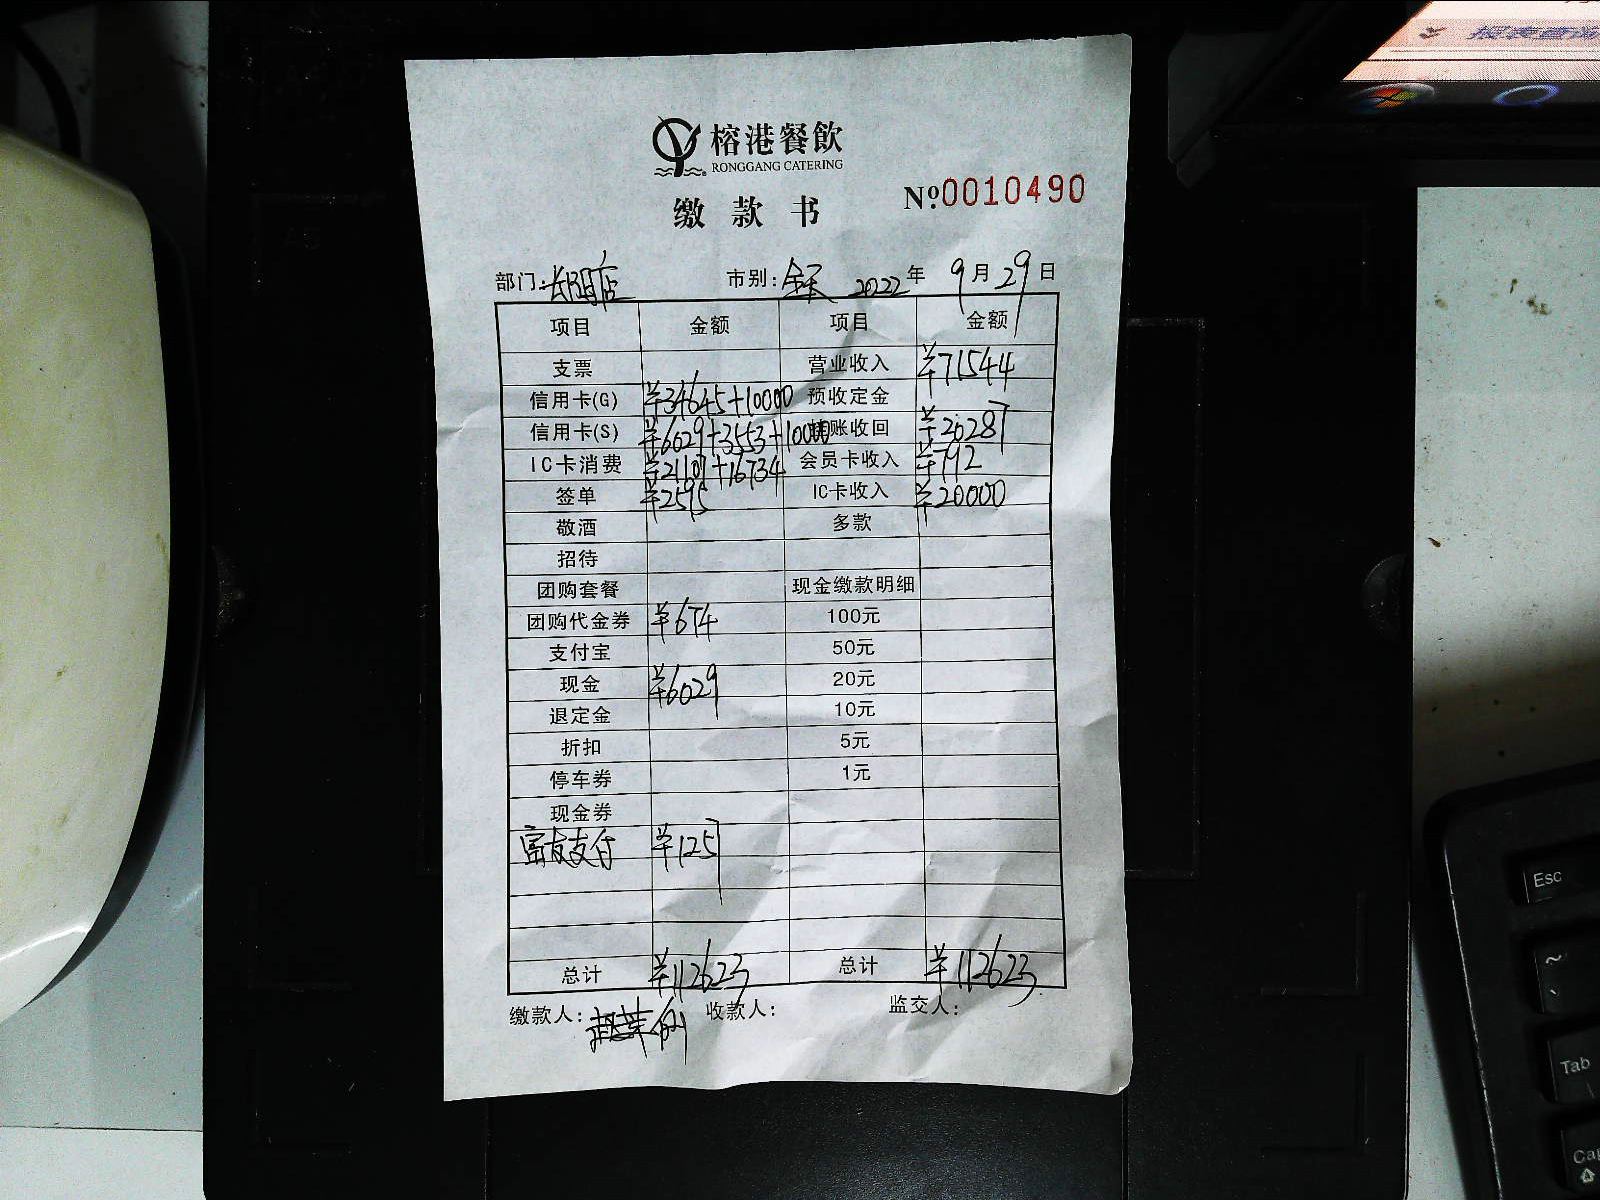 报表查询
榕港餐飲
RONGGANG CATERING
缴款书 №0010490
部门:长阳店 市别:全天 2022年 9月29日
项目 金额 项目 金额
支票 营业收入 ¥71544
信用卡(G) ¥34645+10000 预收定金
信用卡(S) ¥6029+3553+10000 账收回 ¥20287
IC卡消费 ¥21107+16734 会员卡收入 ¥792
签单 ¥2595 IC卡收入 ¥20000
敬酒 多款
招待
团购套餐 现金缴款明细
团购代金券 ¥674 100元
支付宝 50元
现金 ¥6029 20元
退定金 10元
折扣 5元
停车券 1元
现金券
富友支付 ¥1257
总计 ¥112623 总计 ¥112623
缴款人: 收款人: 监交人:
Esc
~
Tab